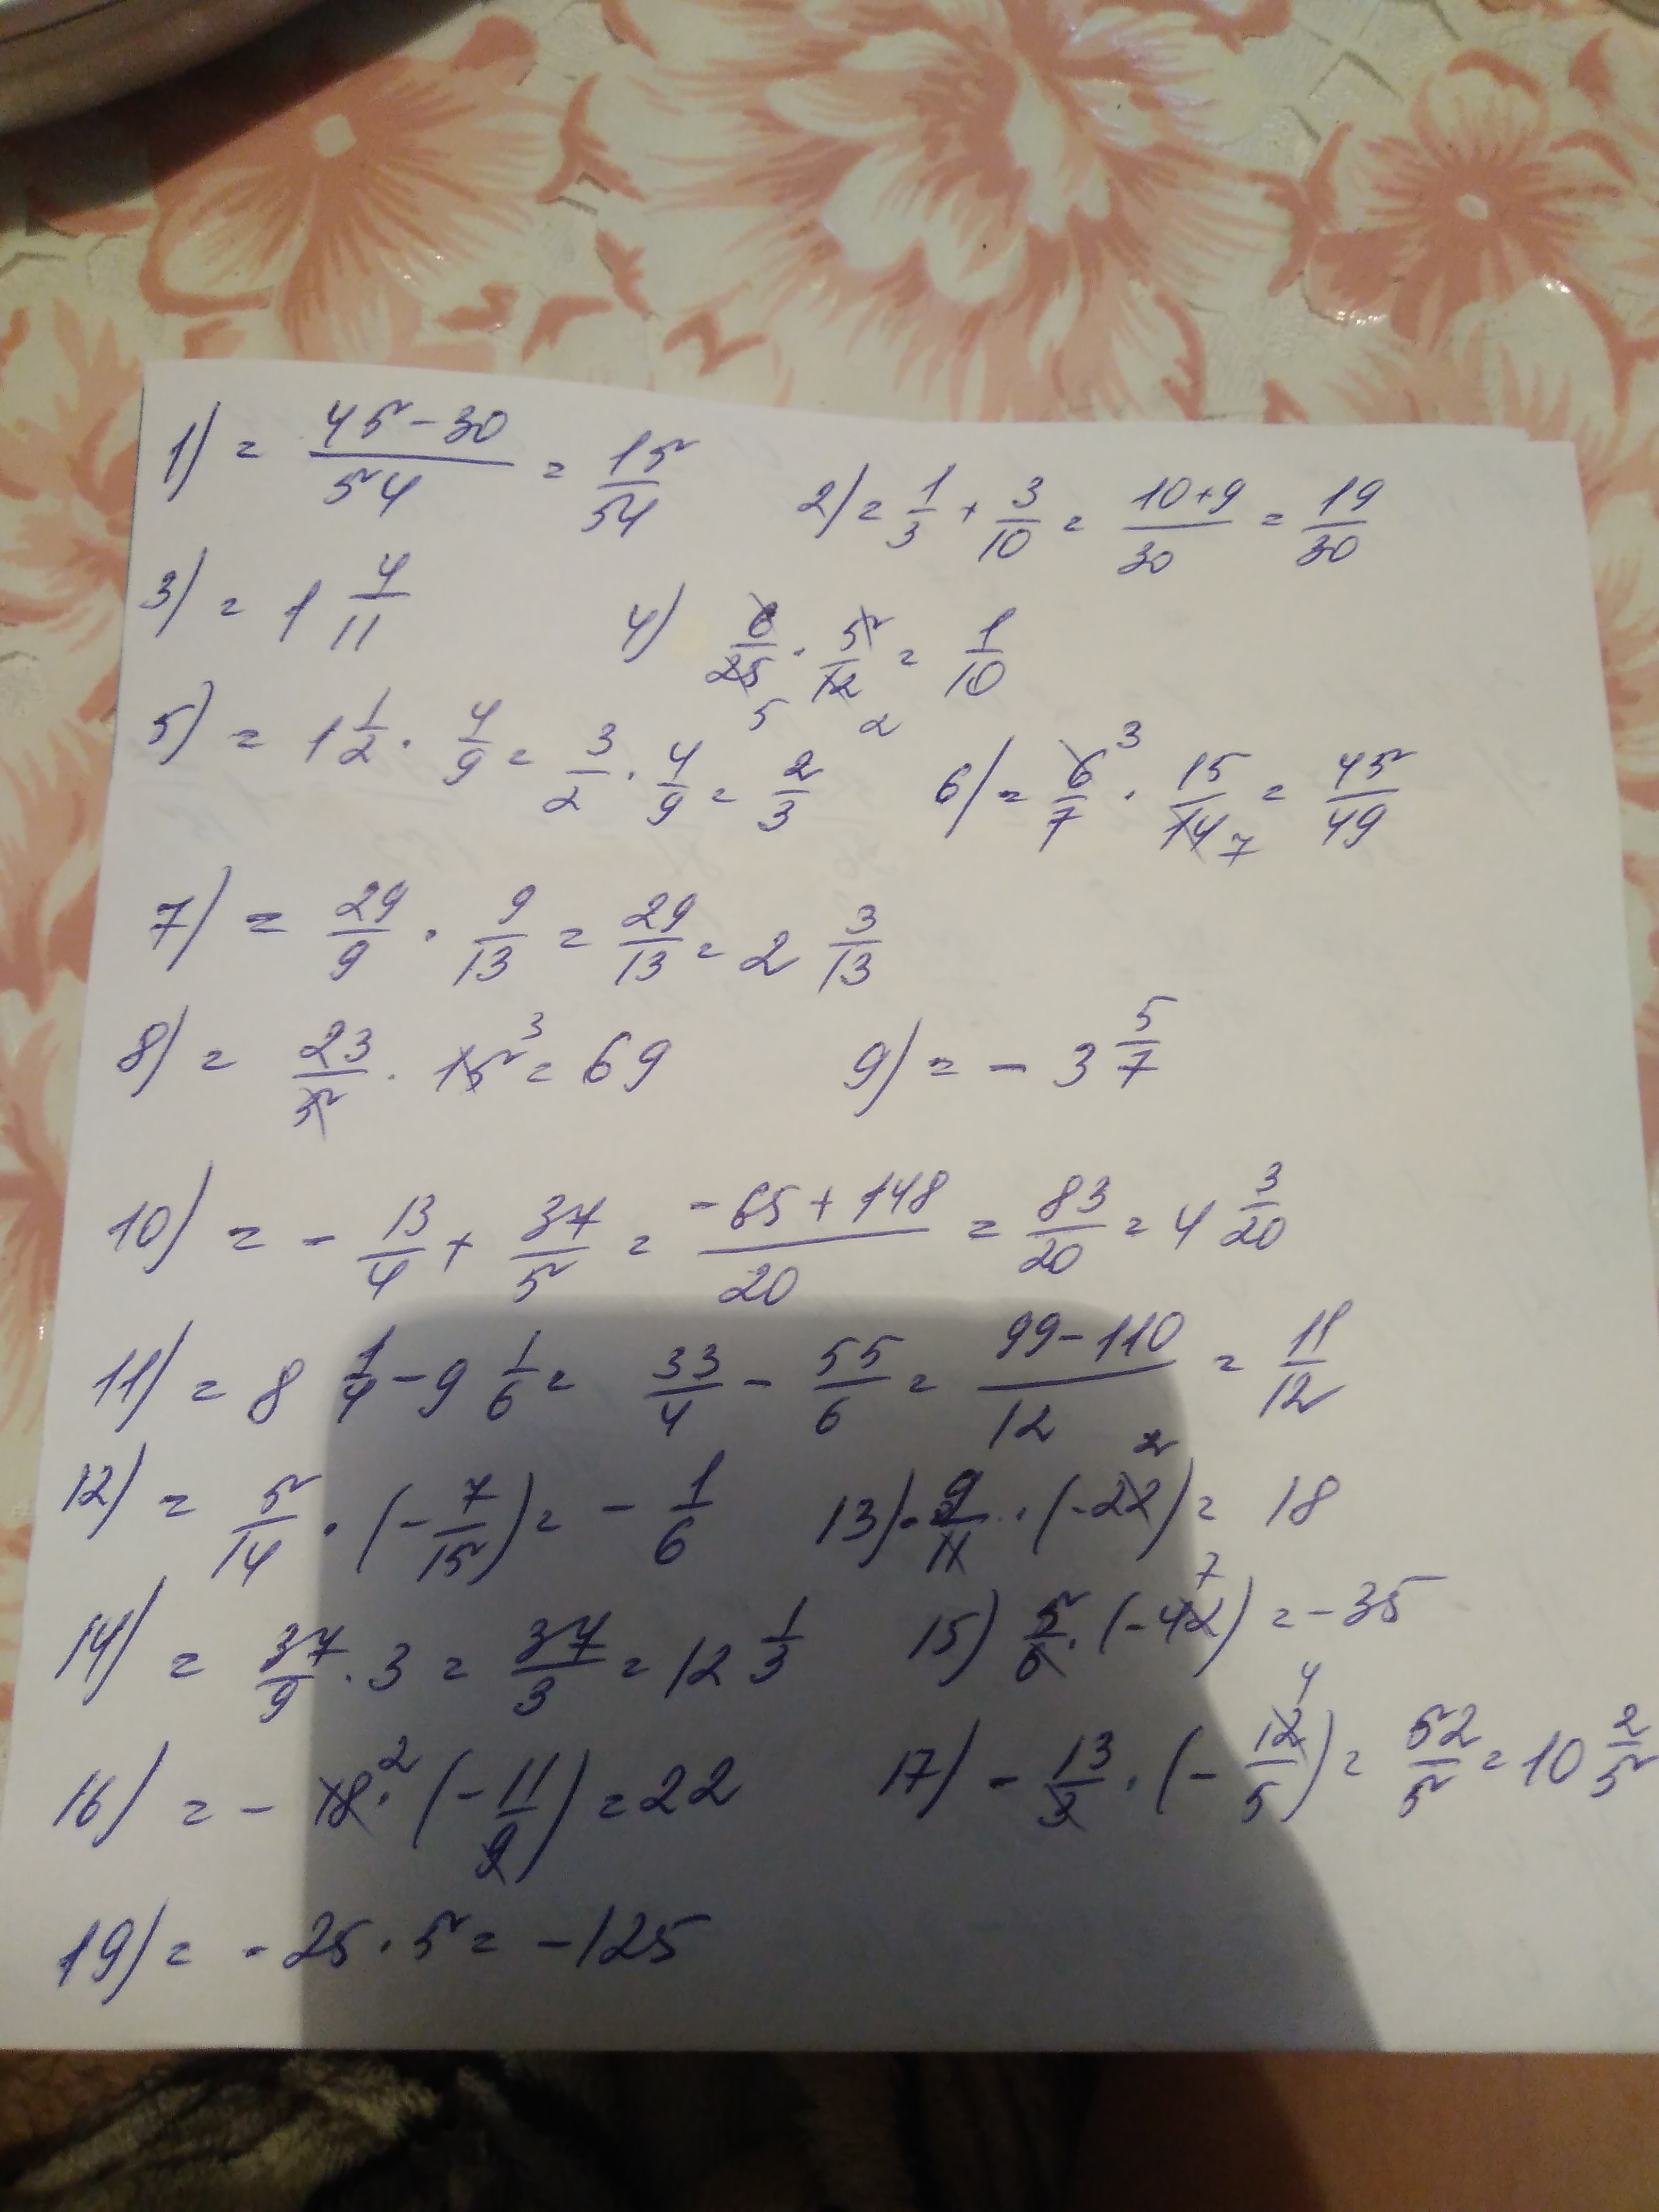 1) = 45-30/54 = 15/54 2) = 1/3 + 3/10 = 10+9/30 = 19/30
3) = 1 4/11 4) 6/25 · 5/12 = 1/10 5 2
5) = 1 1/2 · 4/9 = 3/2 · 4/9 = 2/3 6) = 6/7 · 15/14 = 45/49 3 7
7) = 29/9 · 9/13 = 29/13 = 2 3/13
8) = 23/5 · 15 3 = 69 9) = - 3 5/7
10) = - 13/4 + 37/5 = -65+148/20 = 83/20 = 4 3/20
11) = 8 1/4 - 9 1/6 = 33/4 - 55/6 = 99-110/12 = 11/12
12) = 5/14 · (- 7/15) = - 1/6 13) - 9/11 · (-22) 2 = 18
14) = 37/9 · 3 = 37/3 = 12 1/3 15) 5/6 · (-42) 7 = -35
16) = - 18 2 · (- 11/9) = 22 17) - 13/3 · (- 12/5) 4 = 52/5 = 10 2/5
19) = - 25 · 5 = -125